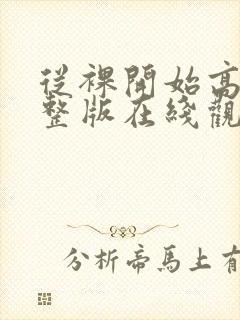 從裸開始高
整版在綫觀
分析帝馬上有